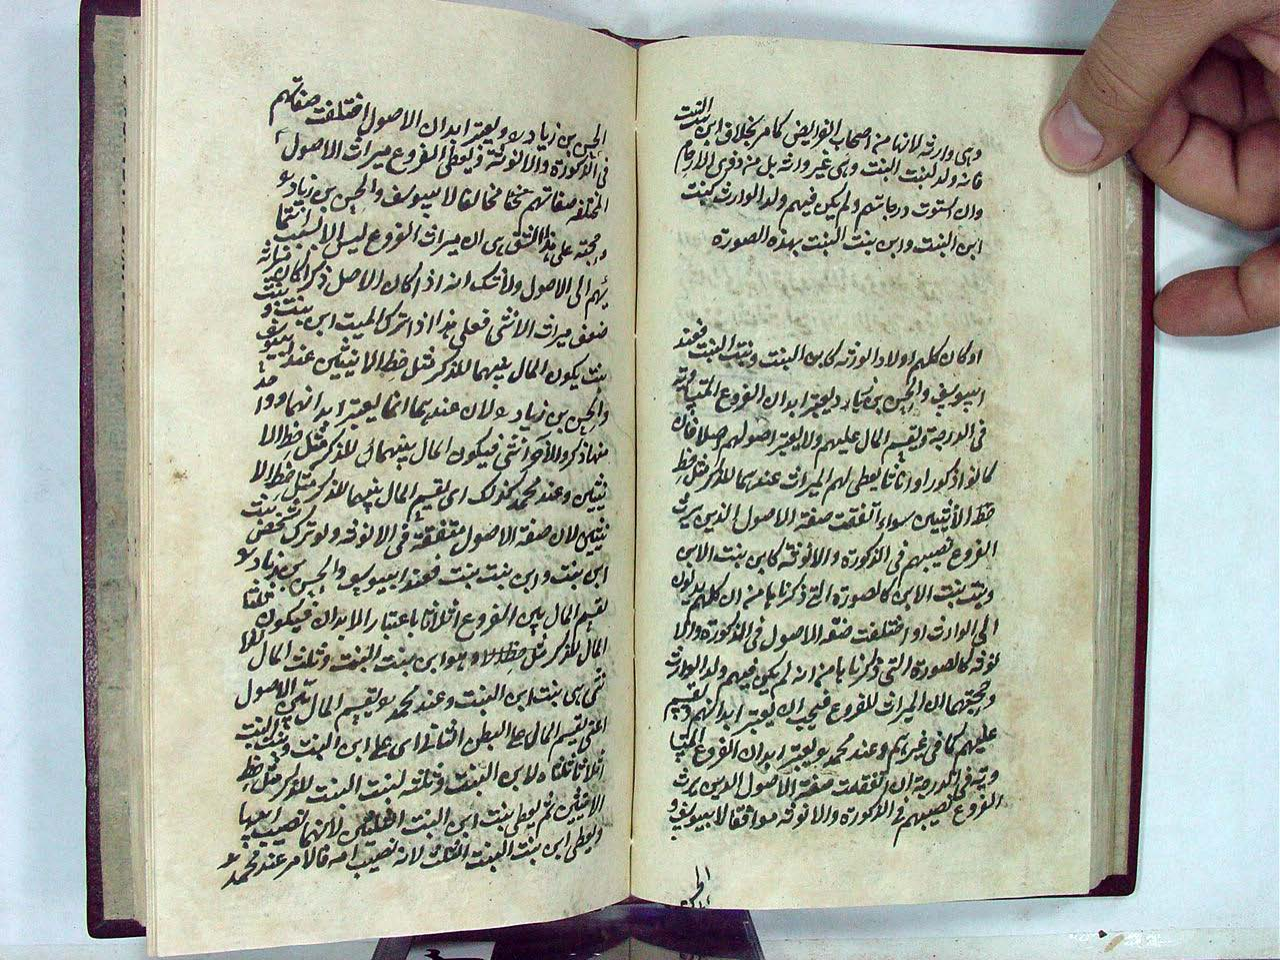 وهى وارثه لانها من اصحاب الفرايض كما مر بخلاف ابن بنت البنت
فانه ولد لبنت البنت وهى غير وارثه بل من ذوى الارحام
وان استوت درجاتهم ولم يكن فيهم ولد الوارث كبنت
ابن البنت وابن بنت البنت بهذه الصورة
او كان كلهم اولاد الورثه كابن البنت وبنت البنت فعند
ابيوسف والحسن بن زياد يعتبر ابدان الفروع المتساوية
فى الدرجة ويقسم المال عليهم ولا يعتبر اصولهم اصلا فان
كانوا ذكورا او اناثا يعطى لهم الميراث عندهما للذكر مثل حظ
حظ الأنثيين سواء اتفقت صفة الاصول الذين يرث
الفروع نصيبهم فى الذكورة والانوثة كابن بنت الابن
وبنت بنت الابن كالصورة التى ذكرنا بامن ان كلهم يدلون
الى الوارث او اختلفت صفة الاصول فى الذكورة والا
نوثه كالصورة التى ذكرنا بامن انه لم يكن فيهم ولد الوارث
وحجتهما ان الميراث للفروع فيجب ان يعتبر ابدانهم ويقسم
عليهم كما فى غيرهم وعند محمد يعتبر ابدان الفروع المتسا
وية فى الدرجة ان اتفقت صفة الاصول الذين يرث
الفروع نصيبهم فى الذكورة والانوثه موافقا لابيوسف و
الحسن
الحسن بن زياد ويعتبر ابدان الاصول اختلفت صفاتهم
فى الذكورة والانوثة ويعطى الفروع ميراث الاصول
المختلفه صفاتهم مخالفا لابيوسف والحسن بن زياد
وحجته على هذا الشق هى ان ميراث الفروع ليس الا بانتما
ئهم الى الاصول ولا شك انه اذا كان الاصل ذكرا كان ميراثه
ضعف ميراث الانثى فعلى هذا اذا ترك الميت ابن بنت و بنت
بنت يكون المال بينهما للذكر مثل حظ الانثيين عند ابيوسف
والحسن بن زياد لان عندهما انما يعتبر ابدانهما وواحد
منهما ذكر والآخر انثى فيكون المال بينهما اى للذكر مثل حظ الا
نثيين وعند محمد كذلك اى يقسم المال بينهما للذكر مثل حظ الا
نثيين لان صفة الاصول متفقة فى الانوثه ولو ترك شخص بنت
ابن بنت وابن بنت بنت فعند ابيوسف والحسن بن زياد
يقسم المال بين الفروع اثلاثا باعتبار الابدان فيكون ثلثا
المال للذكر وهو ابن بنت البنت وثلث المال للا
نثى هى بنت ابن البنت وعند محمد يقسم المال بين الاصول
اعنى يقسم المال على البطن الثانى اى على ابن البنت وبنت البنت
اثلاثا ثلثاه لابن البنت وثلثه لبنت البنت للذكر مثل حظ
الانثيين ثم يعطى بنت ابن البنت الثلثين لانهما نصيب ابيها
ويعطى ابن بنت البنت الثلث لانه نصيب امه فالامر عند محمد